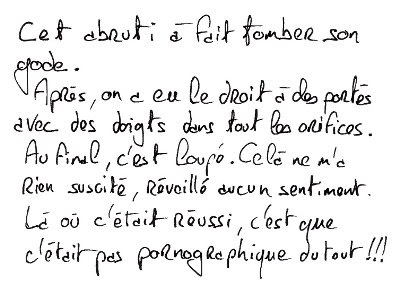 Cet abruti à fait tomber son
gode.
Après, on a eu le droit à des portés
avec des doigts dans tout les orifices.
Au final, c'est loupé. Celà ne m'a
rien suscité, réveillé aucun sentiment.
Là où c'était réussi, c'est que
c'était pas pornographique du tout !!!